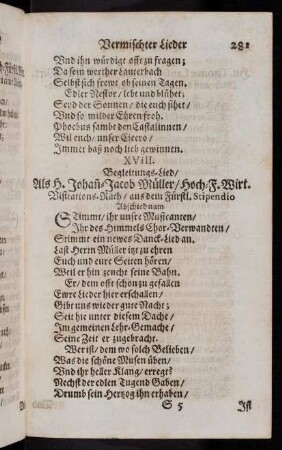 Vermischter Lieder 281
Vnd ihn würdigt offt zu fragen;
Da sein werther Lauerbach
Selbst sich frewt ob seinen Tagen.
Edler Nestor / lebt und blühet;
Seyd der Sonnen / die euch sihet /
Vnd so milder Ehren froh.
Phœbus sambt den Castalinnen /
Wil euch / unser Cicero /
Immer baß noch lieb gewinnen.
XVIII.
Begleitungs-Lied /
Als H. Johañ-Jacob Müller / Hoch-F. Wirt.
Visitations-Rath / aus dem Fürstl. Stipendio
Abschied nam
Stimmt / ihr unsre Musicanten /
Ihr des Himmels Chor-Verwandten /
Stimmt ein newes Danck-Lied an.
Last Herrn Müller itzt zu ehren
Euch und eure Seiten hören /
Weil er hin zeucht seine Bahn.
Er / dem offt schon zu gefallen
Ewre Lieder hier erschallen /
Gibt uns wieder gute Nacht;
Seit hie unter diesem Dache /
Im gemeinen Lehr-Gemache /
Seine Zeit er zugebracht.
Wer ist / dem wo solch Belieben /
Was die schöne Musen üben /
Vnd ihr heller Klang / erregt?
Nechst der edlen Tugend Gaben /
Drumb sein Hertzog ihn erhaben /
S 5 Ist